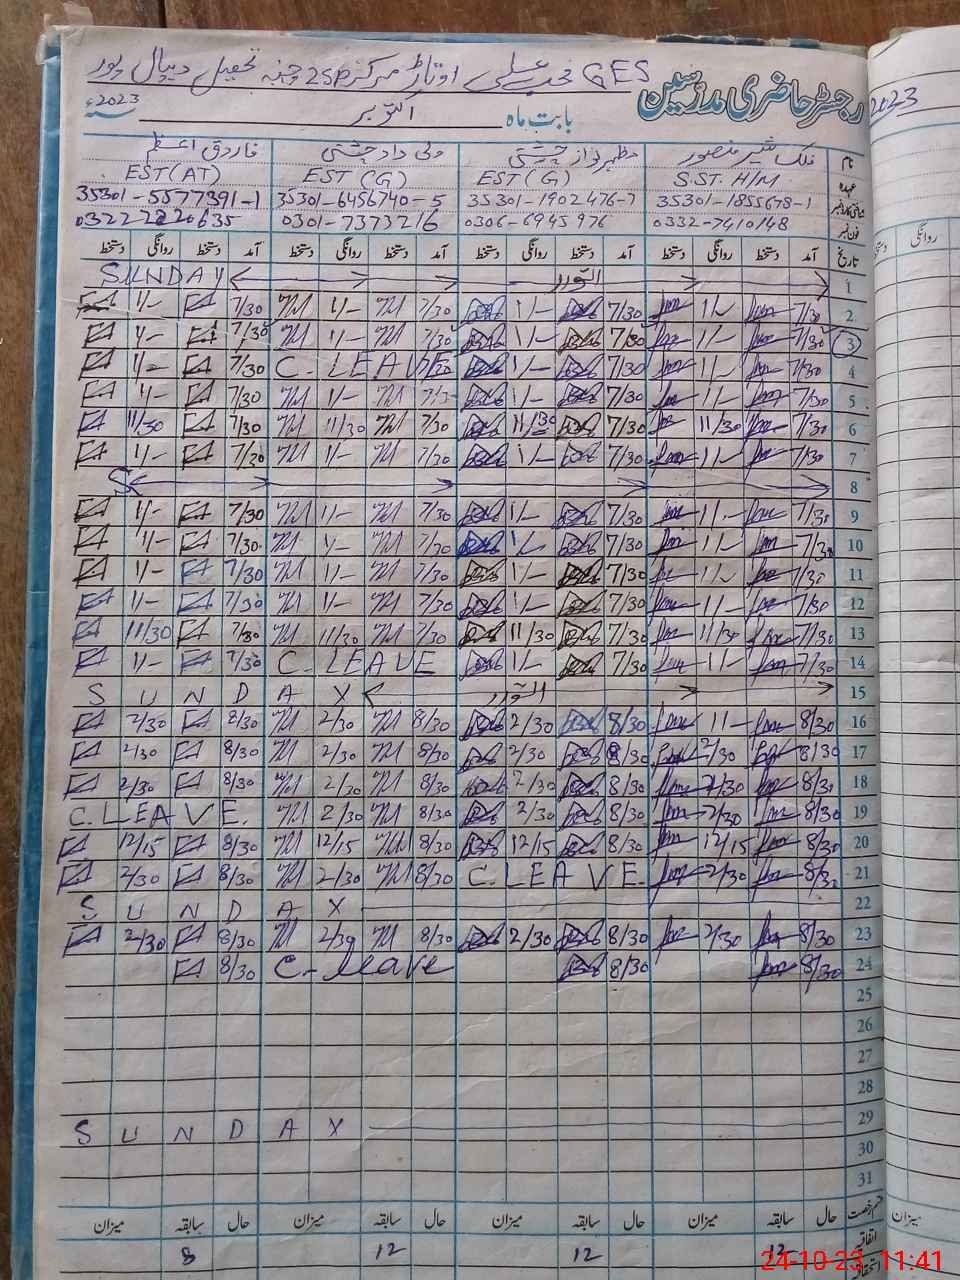 GES محمد علی اوتاڑ مرکز 25P چنہ تحصیل دیپال پور
رجسٹر حاضری مدرسین
بابت ماہ اکتوبر 2023ء
2023
نام فلک شیر منصور مظہر نواز چشتی ولی داد چشتی فاروق اعظم
عہدہ S.ST. H/M EST(G) EST(G) EST(AT)
35301-1855678-1 35301-1902476-7 35301-6456740-5 35301-5577391-1
فون نمبر 0332-7410148 0306-6945976 0301-7373216 03222820635
تاریخ آمد دستخط روانگی دستخط آمد دستخط روانگی دستخط آمد دستخط روانگی دستخط آمد دستخط روانگی دستخط
روانگی دستخط
1 اتوار SUNDAY
2 7/30 1/- 7/30 1/- 7/30 1/- 7/30 1/-
3 7/30 1/- 7/30 1/- 7/30 1/- 7/30 1/-
4 7/30 1/- 7/30 1/- C. LEAVE 7/30 7/30 1/-
5 7/30 1/- 7/30 1/- 7/30 1/- 7/30 1/-
6 7/30 11/30 7/30 11/30 7/30 11/30 7/30 11/30
7 7/30 1/- 7/30 1/- 7/30 1/- 7/30 1/-
8 S
9 7/30 1/- 7/30 1/- 7/30 1/- 7/30 1/-
10 7/30 1/- 7/30 1/- 7/30 1/- 7/30 1/-
11 7/30 1/- 7/30 1/- 7/30 1/- 7/30 1/-
12 7/30 1/- 7/30 1/- 7/30 1/- 7/30 1/-
13 7/30 11/30 7/30 11/30 7/30 11/30 7/30 11/30
14 7/30 1/- 7/30 1/- C. LEAVE 7/30 1/-
15 اتوار S U N D A Y
16 8/30 1/- 8/30 2/30 8/30 2/30 8/30 2/30
17 8/30 2/30 8/30 2/30 8/30 2/30 8/30 2/30
18 8/30 2/30 8/30 2/30 8/30 2/30 8/30 2/30
19 8/30 2/30 8/30 2/30 8/30 2/30 C. LEAVE.
20 8/30 12/15 8/30 12/15 8/30 12/15 8/30 12/15
21 8/30 2/30 C. LEAVE. 8/30 2/30 8/30 2/30
22 S U N D A Y
23 8/30 2/30 8/30 2/30 8/30 2/30 8/30 2/30
24 8/30 8/30 C. leave 8/30
25
26
27
28
29 S U N D A Y
30
31
قسم رخصت حال سابقہ میزان حال سابقہ میزان حال سابقہ میزان حال سابقہ میزان
میزان
اتفاقیہ 12 12 12 8
24-10-23 11:41